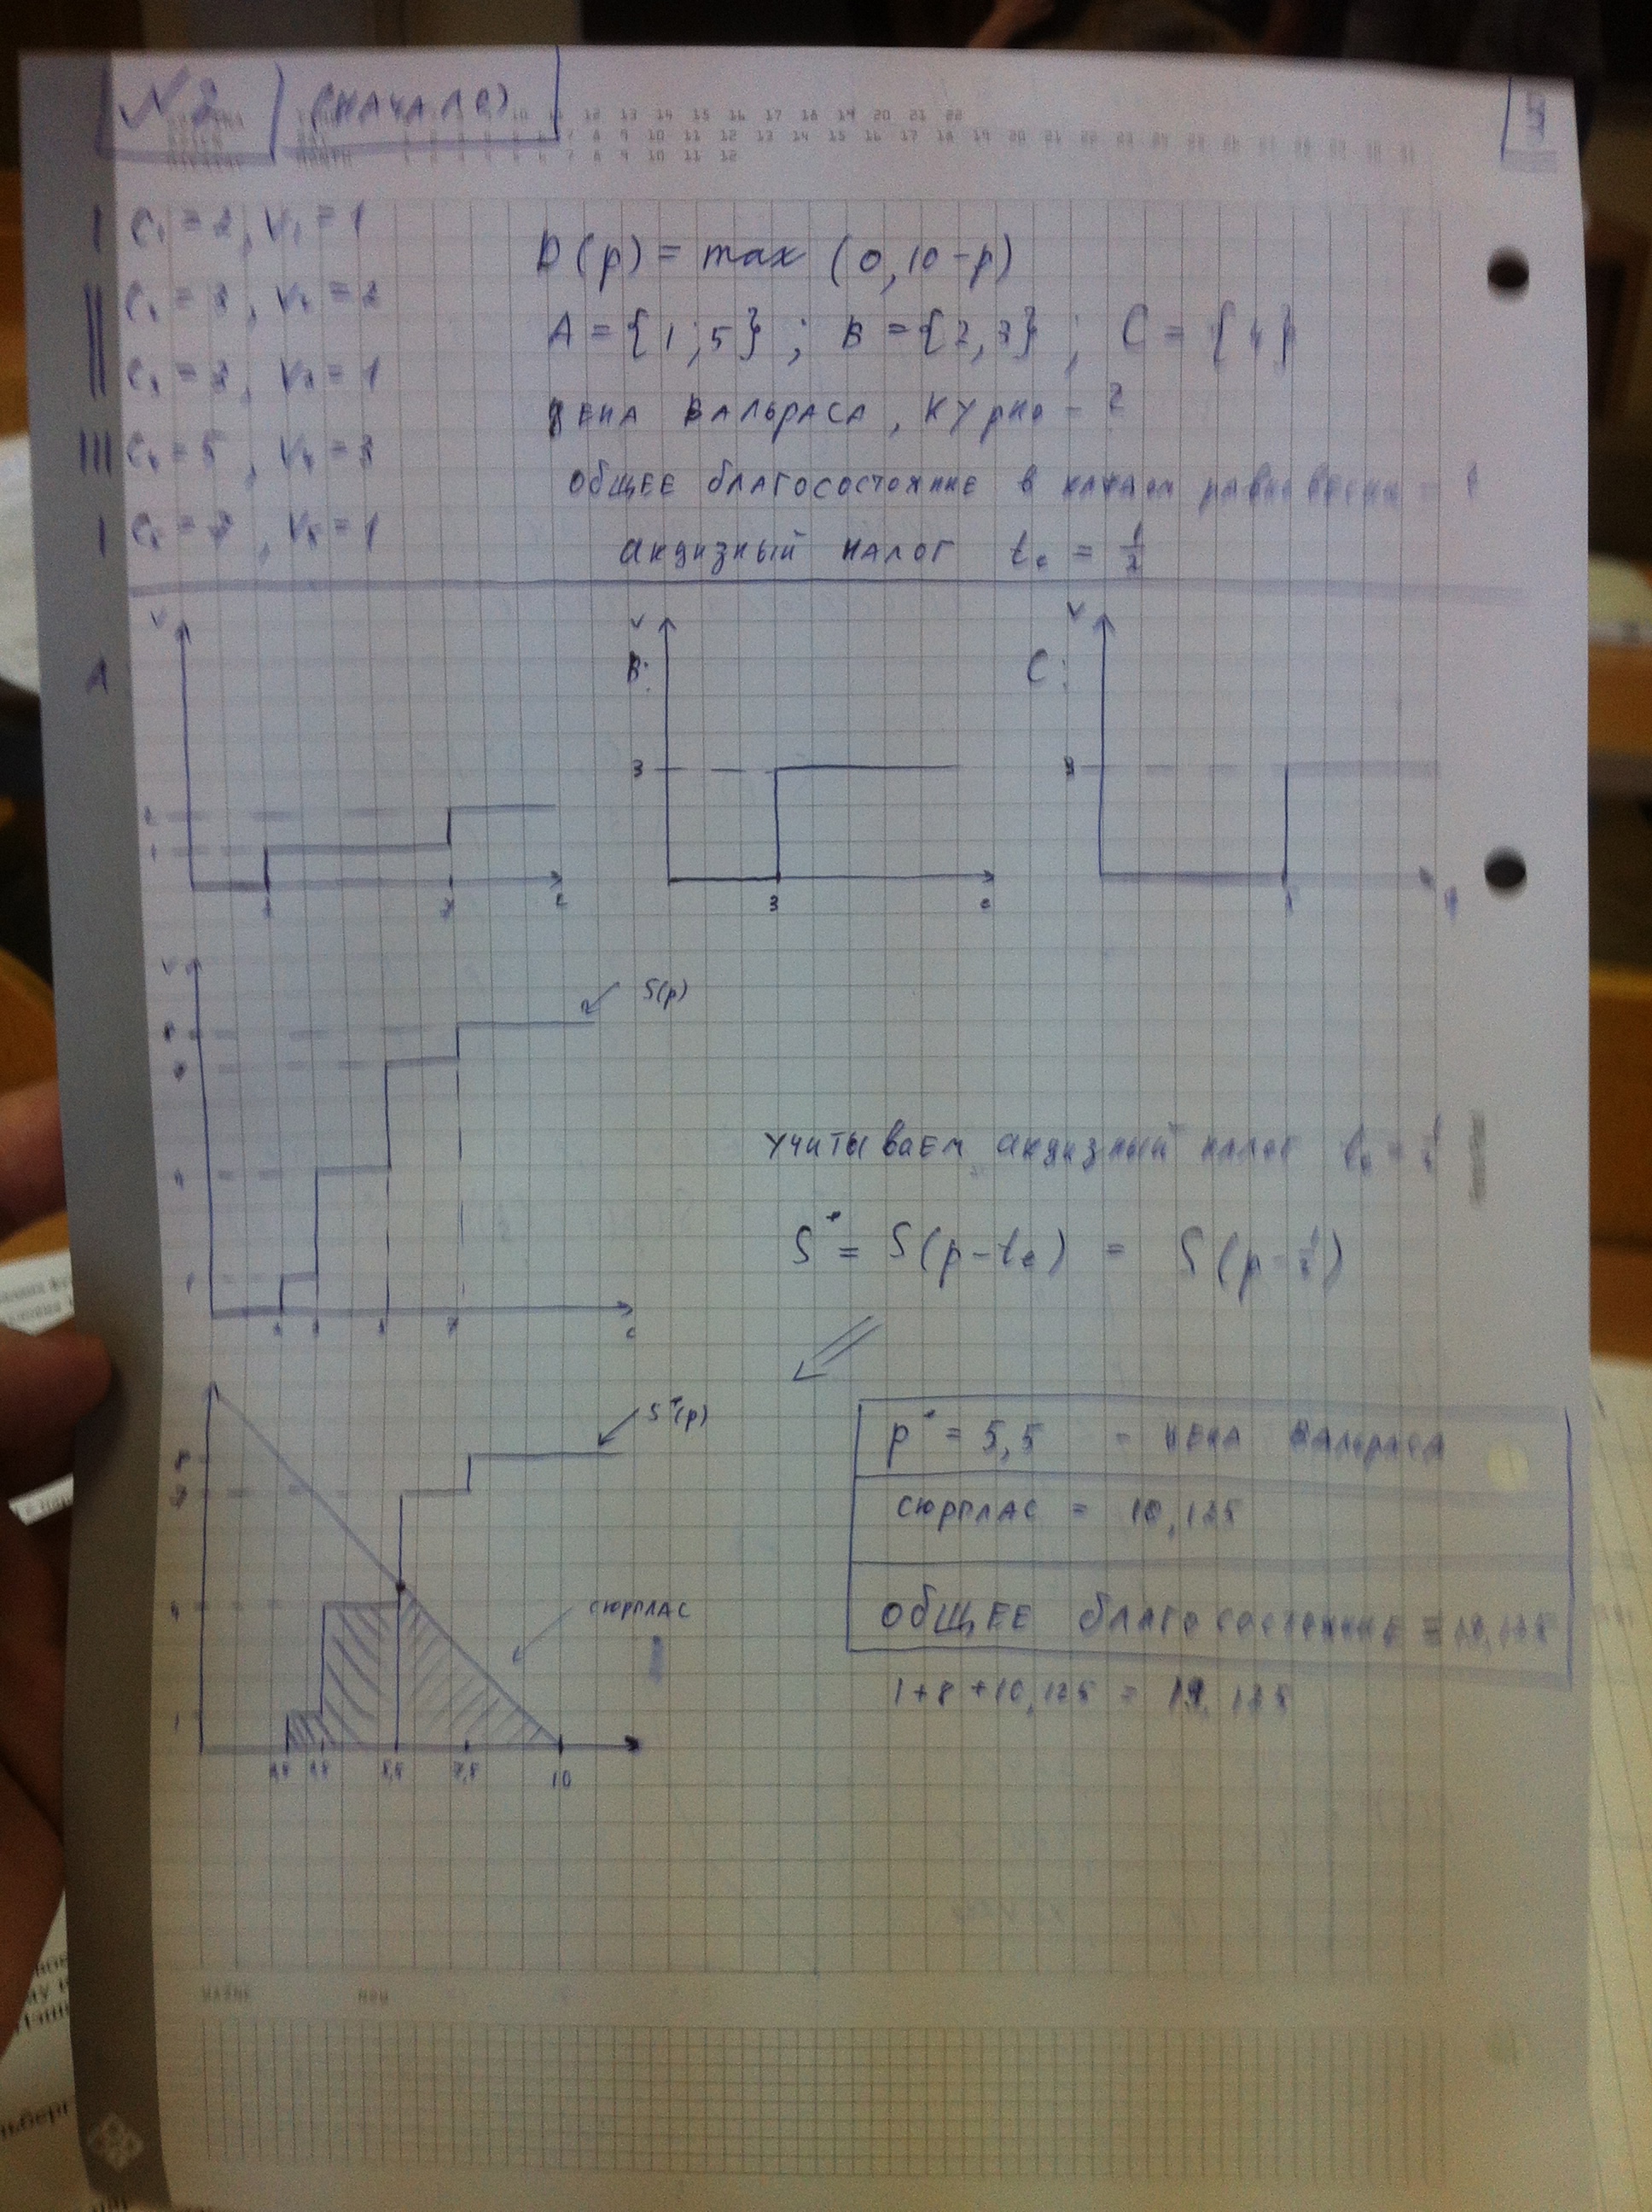 N 2 (НАЧАЛО)
I C₁ = 2, V₁ = 1
D(p) = max (0, 10-p)
II C₂ = 3, V₂ = 2
A = {1; 5}; B = {2, 3}; C = {4}
C₃ = 3, V₃ = 1
ЦЕНА ВАЛЬРАСА, КУРНО - ?
III C₄ = 5, V₄ = 3
ОБЩЕЕ БЛАГОСОСТОЯНИЕ В КАЖДОМ РАВНОВЕСИИ = ?
I C₅ = 7, V₅ = 1
АКЦИЗНЫЙ НАЛОГ tₑ = 1/2
V V V
A B: C:
3 3
2
1
2 7 c 3 c 5
V S(p)
8
7
4
1
2 3 5 7 c
УЧИТЫВАЕМ АКЦИЗНЫЙ НАЛОГ tₑ = 1/2
S* = S(p-tₑ) = S(p-1/2)
S*(p)
8
7
4
1
СЮРПЛАС
2,5 3,5 5,5 7,5 10
p* = 5,5 - ЦЕНА ВАЛЬРАСА
СЮРПЛАС = 10,125
ОБЩЕЕ БЛАГОСОСТОЯНИЕ = 19,125
1+8+10,125 = 19,125